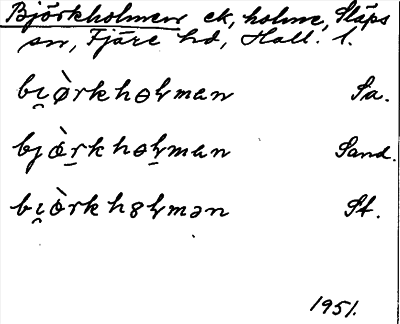 Björkholmen ek, holme, Släps
sn, Fjäre hd, Hall. l.
bi̯ɵ̀rkhɵɫman Sa.
bjòrkhoɫman Sand.
bi̯òrkh8ɫmən St.
1951.